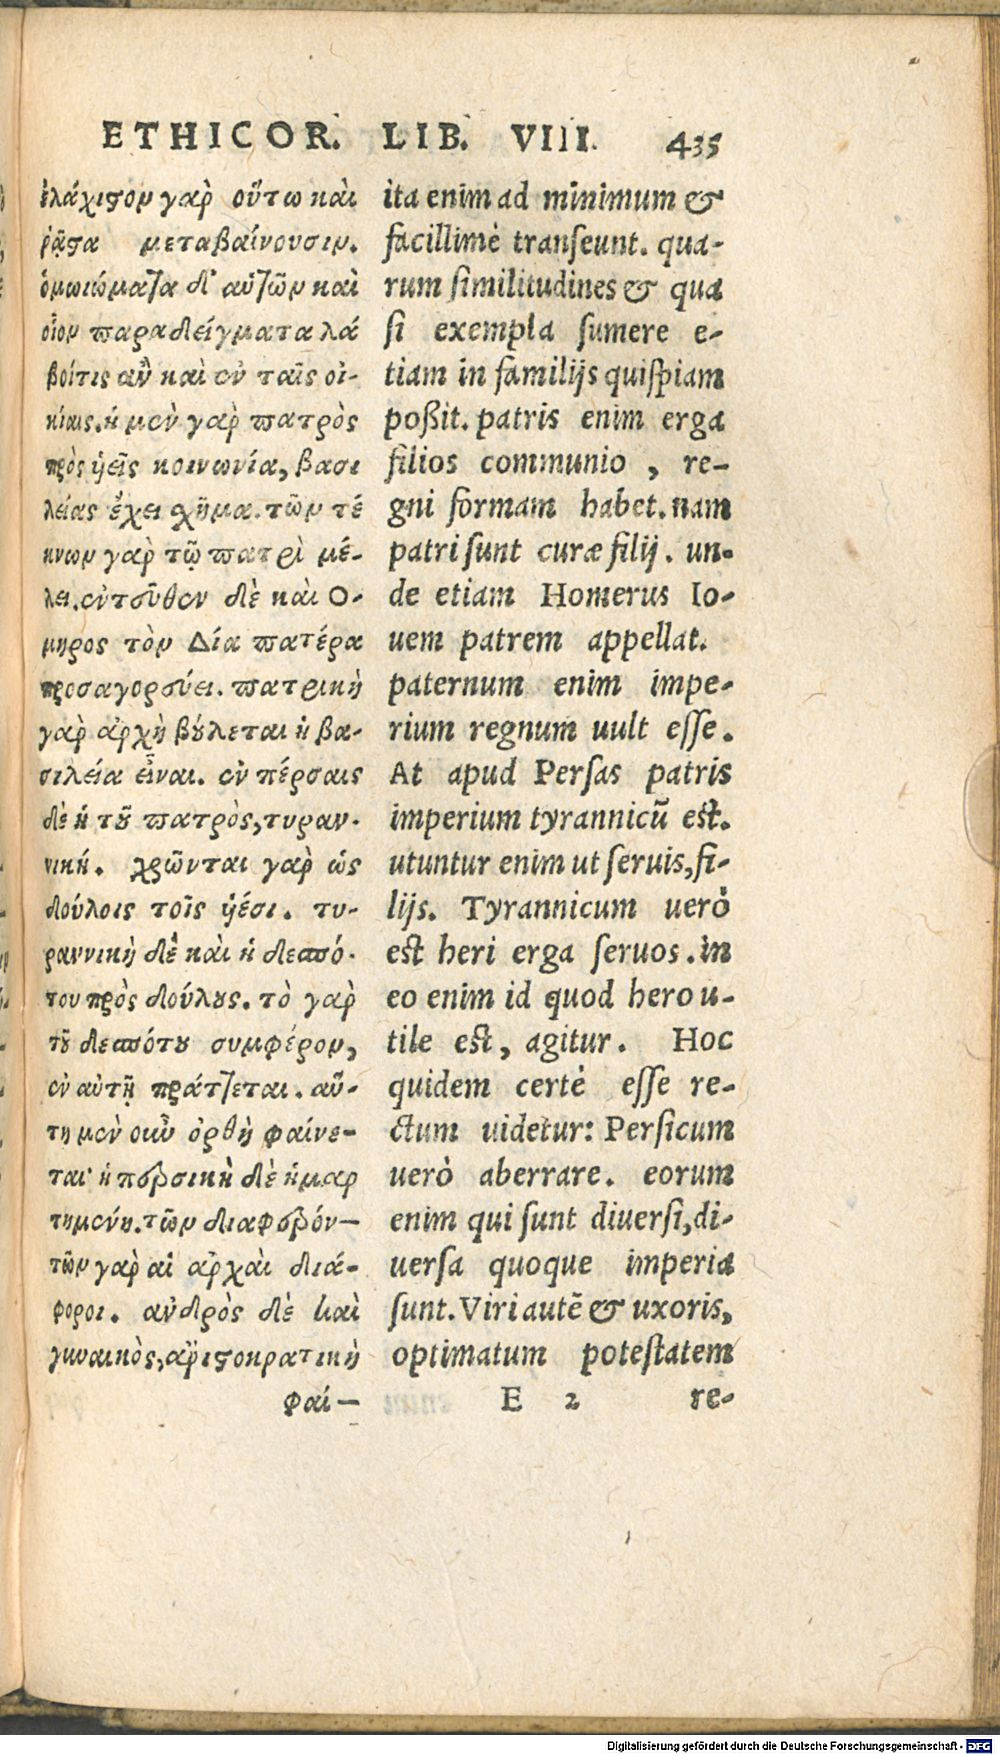 ETHICOR. LIB. VIII. 435
ἐλάχιστον γαρ̀ οὕτω καὶ
ῥᾷστα μεταβαίνουσιν.
ὁμοιώματα δ' αὐτῶν καὶ
οἷον παραδείγματα λά
βοίτις αὖν καὶ ἐν ταῖς οἰ-
κίαις. ἡ μὲν γαρ̀ πατρὸς
πρὸς ὑεῖς κοινωνία, βασι
λείας ἔχει σχῆμα. τῶν τέ
κνων γαρ̀ τῷ πατρὶ μέ-
λει. ἐντεῦθεν δὲ καὶ Ο-
μηρος τὸν Δία πατέρα
προσαγορεύει. πατρικὴ
γαρ̀ ἀρχὴ βούλεται ἡ βα-
σιλεία εἶναι. ἐν πέρσαις
δὲ ἡ τοῦ πατρὸς, τυραν-
νική. χρῶνται γαρ̀ ὡς
δούλοις τοῖς ὑέσι. τυ-
ραννικὴ δὲ καὶ ἡ δεσπό-
του πρὸς δούλους. τὸ γαρ̀
τοῦ δεσπότου συμφέρον,
ἐν αὐτῇ πράττεται. αὕ-
τη μὲν οὖν ὀρθὴ φαίνε-
ται· ἡ περσικὴ δὲ ἡμαρ
τημένη. τῶν διαφερόν-
τῶν γαρ̀ αἱ ἀρχαὶ διά-
φοροι. ἀνδρὸς δὲ καὶ
γυναικὸς, ἀριστοκρατικὴ
φαί-
ita enim ad minimum &
facillimè tranſeunt. qua-
rum ſimilitudines & qua
ſi exempla ſumere e-
tiam in familijs quiſpiam
poßit. patris enim erga
filios communio, re-
gni formam habet. nam
patri ſunt curæ filij. un-
de etiam Homerus Io-
uem patrem appellat.
paternum enim impe-
rium regnum uult eſſe.
At apud Perſas patris
imperium tyrannicū eſt.
utuntur enim ut ſeruis, fi-
lijs. Tyrannicum uerò
eſt heri erga ſeruos. in
eo enim id quod hero u-
tile eſt, agitur. Hoc
quidem certè eſſe re-
ctum uidetur: Perſicum
uerò aberrare. eorum
enim qui ſunt diuerſi, di-
uerſa quoque imperia
ſunt. Viri autē & uxoris,
optimatum poteſtatem
E 2 re-
Digitalisierung gefördert durch die Deutsche Forschungsgemeinschaft - DFG